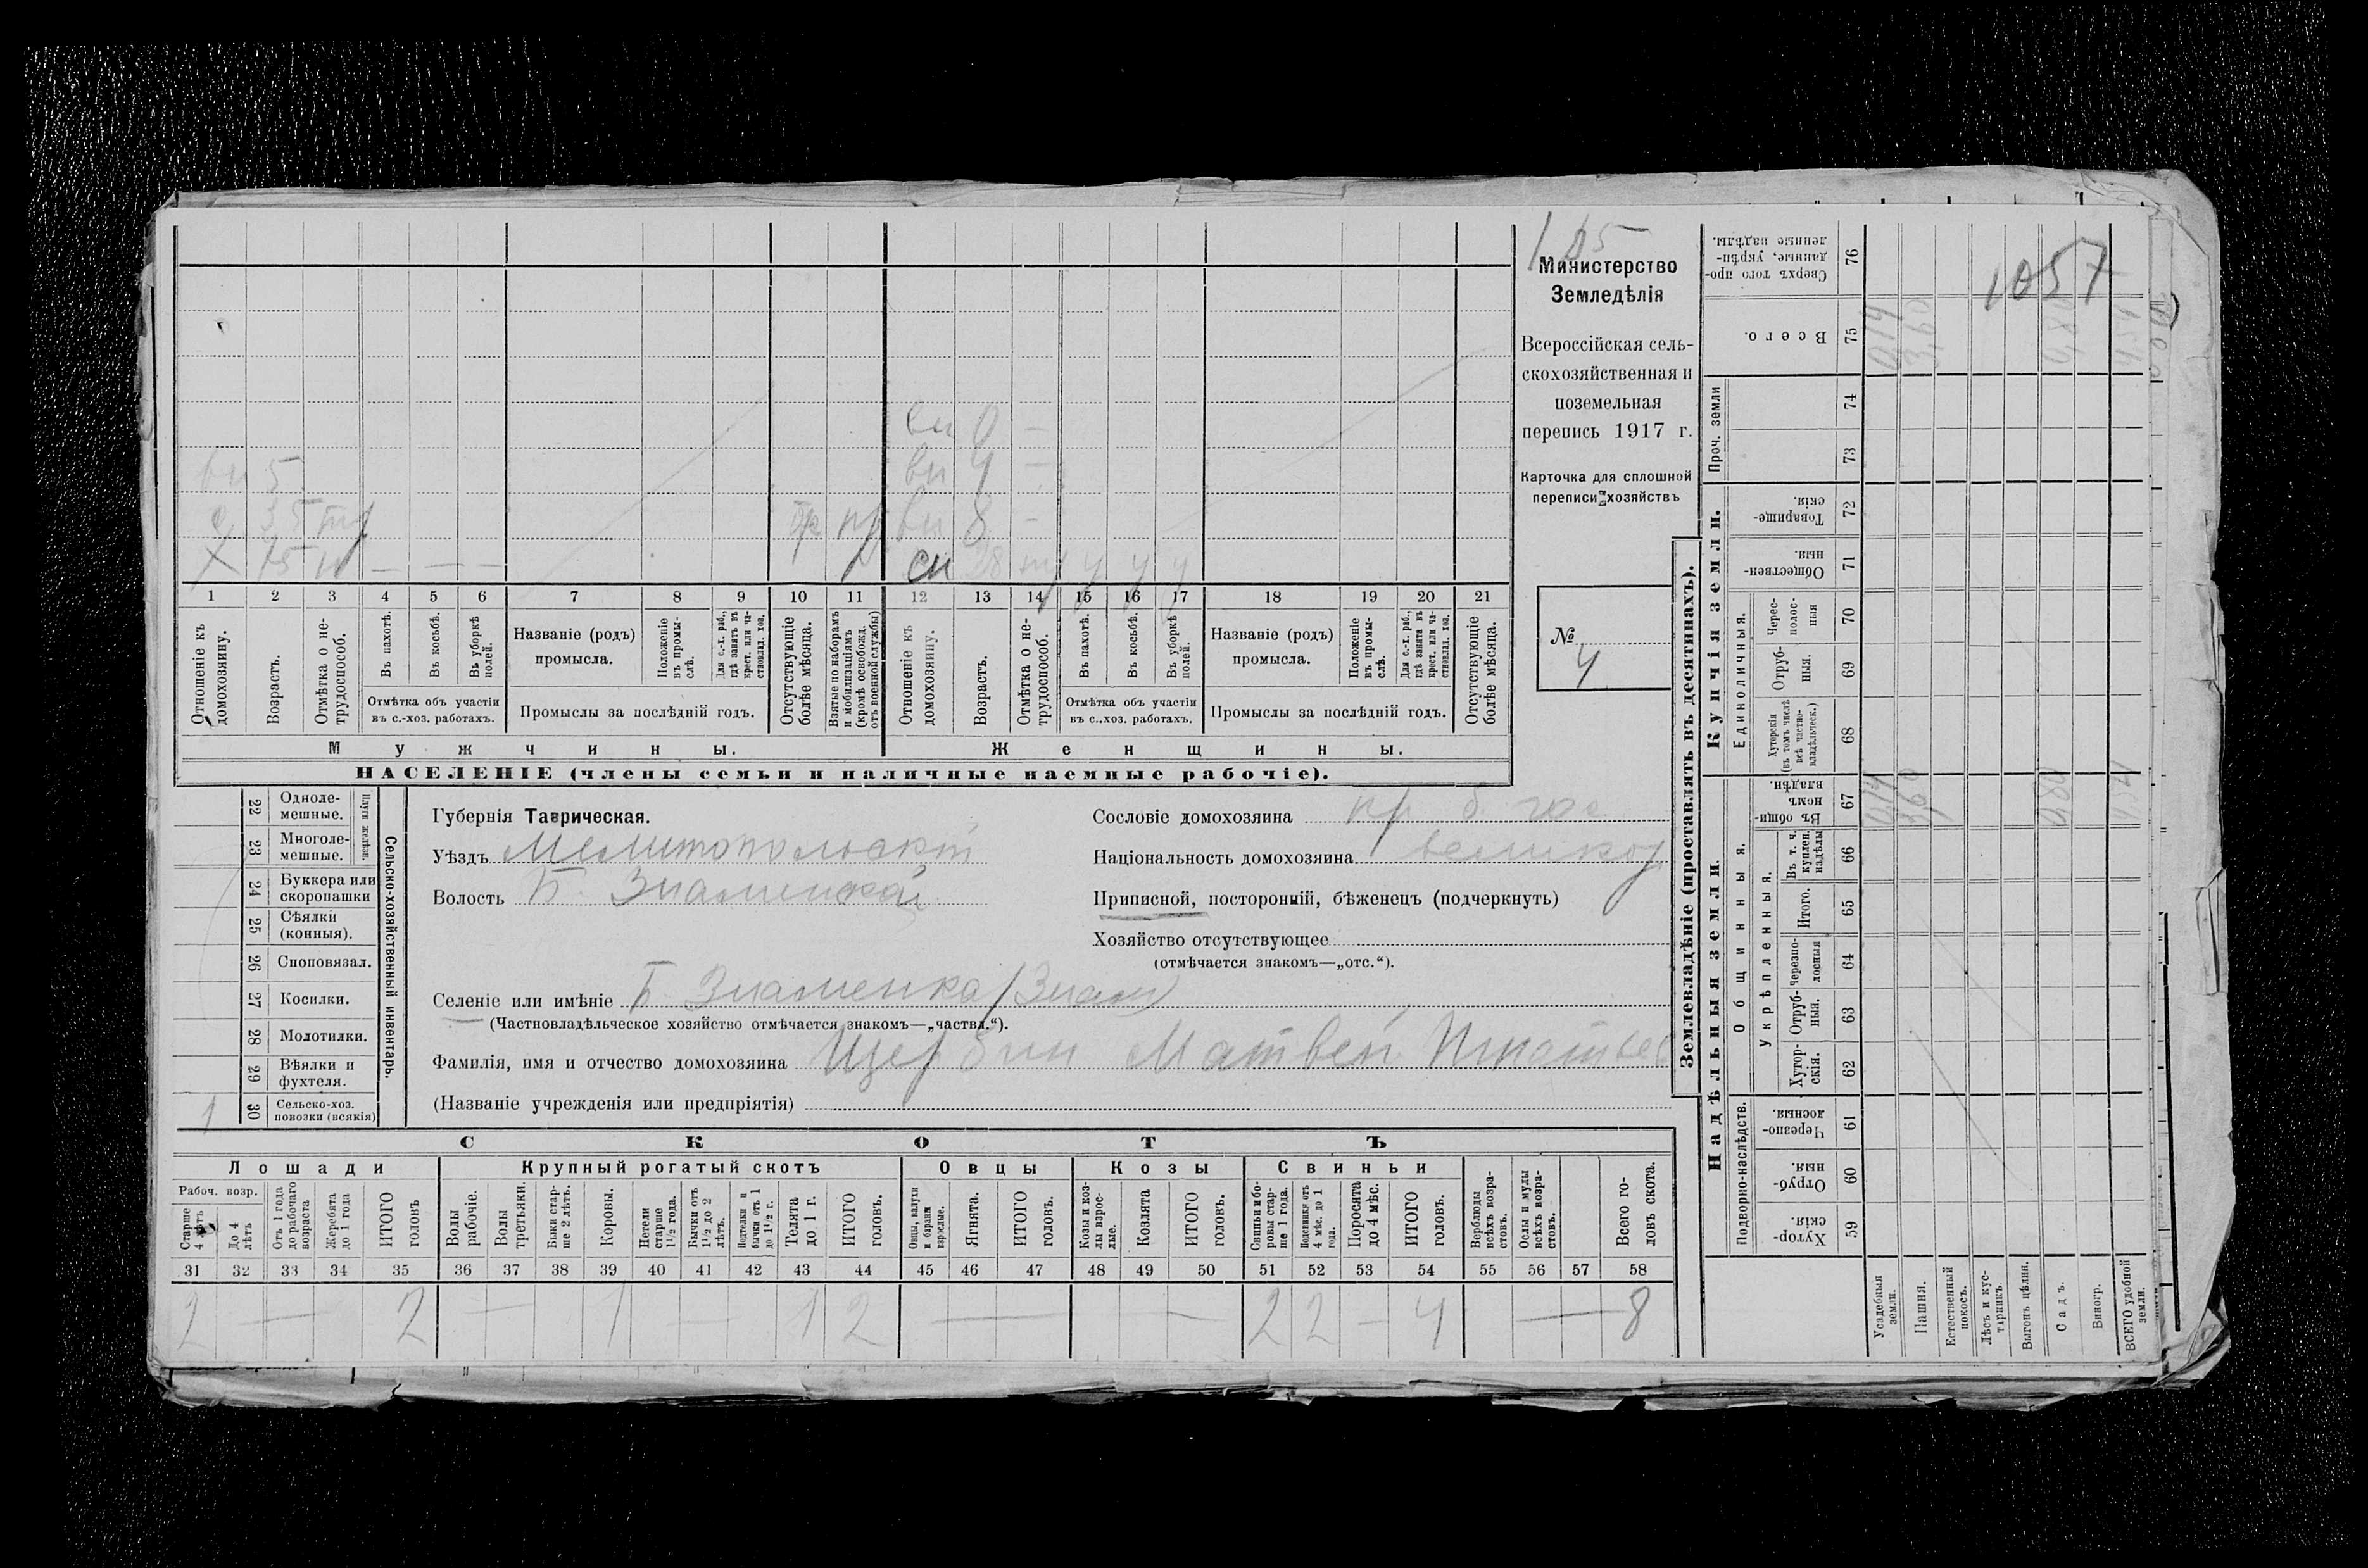 185
Министерство
Земледѣлія
Всероссійская сель-
скохозяйственная и
поземельная
перепись 1917 г.
Карточка для сплошной
переписи хозяйствъ
№
4
вн 0 —
вн 5 вн 4 —
с 35 вн 8 —
Х 75 н — — — сн 28 у у у
1 2 3 4 5 6 7 8 9 10 11 12 13 14 15 16 17 18 19 20 21
Отношеніе къ домохозяину.
Возрастъ.
Отмѣтка о не-трудоспособ.
Въ пахотѣ.
Въ косьбѣ.
Въ уборкѣ полей.
Отмѣтка объ участіи въ с.-хоз. работахъ.
Названіе (родъ) промысла.
Положеніе въ промы-слѣ.
Для с.-х. раб., гдѣ занятъ въ крест. или ча-стновлад. хоз.
Промыслы за послѣдній годъ.
Отсутствующіе болѣе мѣсяца.
Взятые по наборамъ и мобилизаціямъ (кромѣ освобожд. отъ военной службы)
Отношеніе къ домохозяину.
Возрастъ.
Отмѣтка о не-трудоспособ.
Въ пахотѣ.
Въ косьбѣ.
Въ уборкѣ полей.
Отмѣтка объ участіи въ с..хоз. работахъ.
Названіе (родъ) промысла.
Положеніе въ промы-слѣ.
Для с.-х. раб., гдѣ занята въ крест. или ча-стновлад. хоз.
Промыслы за послѣдній годъ.
Отсутствующіе болѣе мѣсяца.
Мужчины. Женщины.
НАСЕЛЕНІЕ (члены семьи и наличные наемные рабочіе).
Сельско-хозяйственный инвентарь.
Плуги желѣзн.
22 Одноле-мешные.
23 Многоле-мешные.
24 Буккера или скоропашки
25 Сѣялки (конныя).
26 Сноповязал.
27 Косилки.
28 Молотилки.
29 Вѣялки и фухтеля.
1 30 Сельско-хоз. повозки (всякія)
Губернія Таврическая.
Уѣздъ Мелитопольскій
Волость Б. Знаменская
Сословіе домохозяина кр
Національность домохозяина великор
Приписной, посторонній, бѣженецъ (подчеркнуть)
Хозяйство отсутствующее
(отмѣчается знакомъ—„отс.“).
Селеніе или имѣніе Б Знаменка (Знам)
(Частновладѣльческое хозяйство отмѣчается знакомъ—„частвл.“).
Фамилія, имя и отчество домохозяина Щербин Матвей
(Названіе учрежденія или предпріятія)
СКОТЪ
Лошади Крупный рогатый скотъ Овцы Козы Свиньи
Рабоч. возр.
Старше 4 лѣтъ
До 4 лѣтъ
Отъ 1 года до рабочаго возраста
Жеребята до 1 года
ИТОГО головъ
Волы рабочіе.
Волы третьяки.
Быки стар-ше 2 лѣтъ.
Коровы.
Нетели старше 1½ года.
Бычки отъ 1½ до 2 лѣтъ.
Подтелки и бычки отъ 1 до 1½ г.
Телята до 1 г.
ИТОГО головъ.
Овцы, валухи и бараны взрослые.
Ягнята.
ИТОГО головъ.
Козы и коз-лы взрос-лые.
Козлята
ИТОГО головъ.
Свиньи и бо-ровы стар-ше 1 года.
Подсвинки отъ 4 мѣс. до 1 года.
Поросята до 4 мѣс.
ИТОГО головъ.
Верблюды всѣхъ возра-стовъ.
Ослы и мулы всѣхъ возра-стовъ.
Всего го-ловъ скота.
31 32 33 34 35 36 37 38 39 40 41 42 43 44 45 46 47 48 49 50 51 52 53 54 55 56 57 58
2 — 2 — 1 — 1 2 — — 2 2 — 4 — 8
Землевладѣніе (проставлять въ десятинахъ).
Надѣльныя земли. Купчія земли.
Подворно-наслѣдств.
Общинныя.
Укрѣпленныя.
Единоличныя.
Проч. земли
Хутор-скія. 59
Отруб-ныя. 60
Черезпо-лосныя 61
Хутор-скія. 62
Отруб-ныя. 63
Черезпо-лосныя 64
Итого. 65
Въ т. ч. куплен. надѣлы 66
Въ общин-номъ владѣн. 67
Хуторскія (въ томъ числѣ всѣ частно-владѣльческ.) 68
Отруб-ныя. 69
Черес-полос-ныя 70
Обществен-ныя. 71
Товарище-скія. 72
73
74
Всего. 75
Сверхъ того про-данные, укрѣп-ленные надѣлы. 76
Усадебныя земли. 0,14 0,14
Пашня. 3,60 3,60
Естественный покосъ.
Лѣсъ и кус-тарникъ.
Выгонъ цѣлин.
Садъ. 0,80 0,80
Виногр.
ВСЕГО удобной земли. 4,54
1057